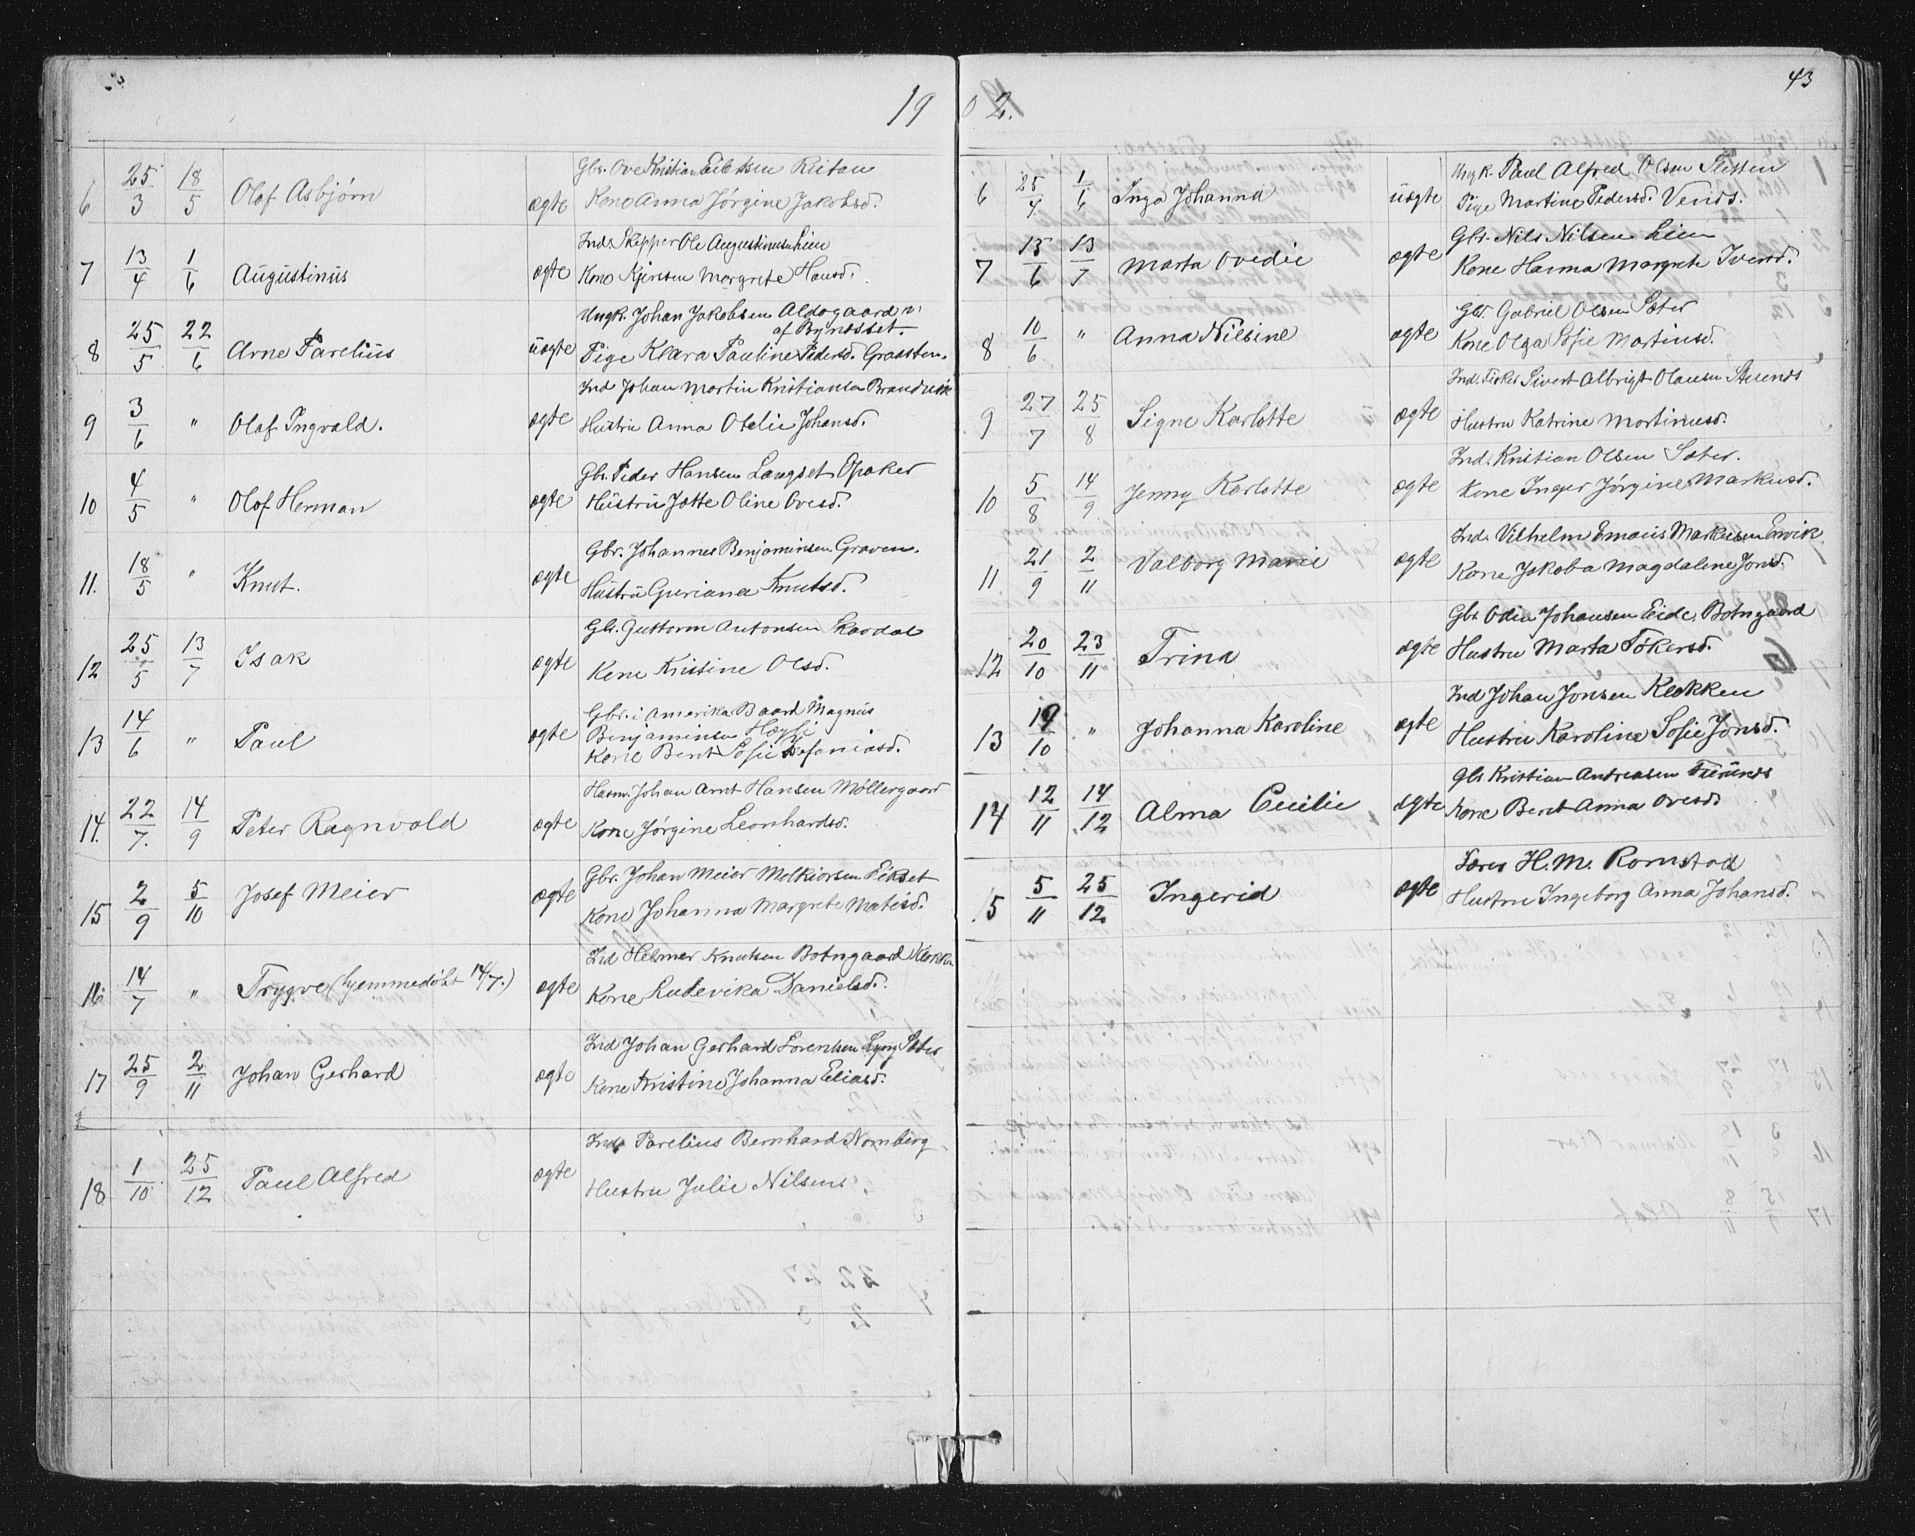 1902.
43
6 25/3 18/5 Olaf Asbjørn ægte Gbr. Ove Kristian Eilertsen Reitan
Kone Anna Jørgine Jakobsd.
7 13/4 1/6 Augustinus ægte Ind. Skipper Ole Augustinusen Lien
Kone Kjersten Margrete Hansd.
8 25/5 22/6 Arne Parelius uægte Ungk. Johan Jakobsen Aldogaard
af Bynesset.
Pige Klara Pauline Pedersd. Graasten.
9 3/6 " Olaf Ingvald. ægte Ind Johan Martin Kristiansen Brandvik
Hustru Anna Otelie Johansd.
10 4/5 " Olof Herman ægte Gbr. Peder Hansen Langset Opaker
Hustru Jotte Oline Ovesd.
11. 18/5 " Knut. ægte Gbr. Johannes Benjaminsen Graven.
Hustru Guriana Knutsd.
12 25/5 13/7 Isak ægte Gbr. Guttorm Antonsen Skavdal
Kone Kristine Olsd.
13 14/6 " Paul ægte Gbr. i Amerika Baard Magnus
Benjaminsen Høysi
Kone Berit Sofie Stefaniasd.
14. 22/7. 14/9 Peter Ragnvald ægte Husm. Johan Arnt Hansen Møllergaard
Kone Jørgine Leonhardsd.
15 2/9 5/10 Josef Meier ægte Gbr. Johan Meier Melkiorsen Eikset
Kone Johanna Margrete Matisd.
16 14/7 " Trygve (hjemmedøbt 14/7.) ægte Ind Helmer Knutsen Botngaard Klokken
Kone Ludevika Danielsd.
17 25/9 2/11 Johan Gerhard ægte Ind Johan Gerhard Lorentsen Lyng Sæter
Kone Kristine Johanna Eliasd.
18 1/10 25/12 Paul Alfred ægte Ind. Parelius Bernhard Nornberg
Hustru Julie Nilsen
6 25/4 1/6 Inga Johanna uægte Ungk. Paul Alfred Olsen Sletten
Pige Martine Pedersd. Vends.
7 15/6 13/7 Marta Ovedie ægte Gbr. Nils Nilsen Lien
Kone Hanna Margrete Iversd.
8 10/6 " Anna Nilsine ægte Gbr. Gabriel Olsen Sæter
Kone Olga Sofie Martinsd.
9 27/7 25/8 Signe Karlotte ægte Ind. Fisker Sivert Albrigt Olausen Steinds
Hustru Katrine Mortinusd.
10 5/8 14/9 Jenny Karlotte ægte Ind. Kristian Olsen Sæter.
Kone Inger Jørgine Markusd.
11 21/9 2/11 Valborg Marie ægte Ind. Vilhelm Emaus Markusen Ervik
Kone Jakoba Magdalene Jonsd.
12 20/10 23/11 Trina ægte Gbr Odin Johansen Eide, Botngaard
Hustru Marta Tøkersd.
13 19/10 " Johanna Karoline ægte Ind Johan Jonsen Klokken
Hustru Karoline Sofie Jonsd.
14 12/11 14/12 Alma Cecilie ægte Gbr Kristian Andreasen Teiends
Kone Berit Anna Ovesd
15 5/11 25/12 Ingerid ægte Lærer H. M. Romstad
Hustru Ingeborg Anna Johansd.